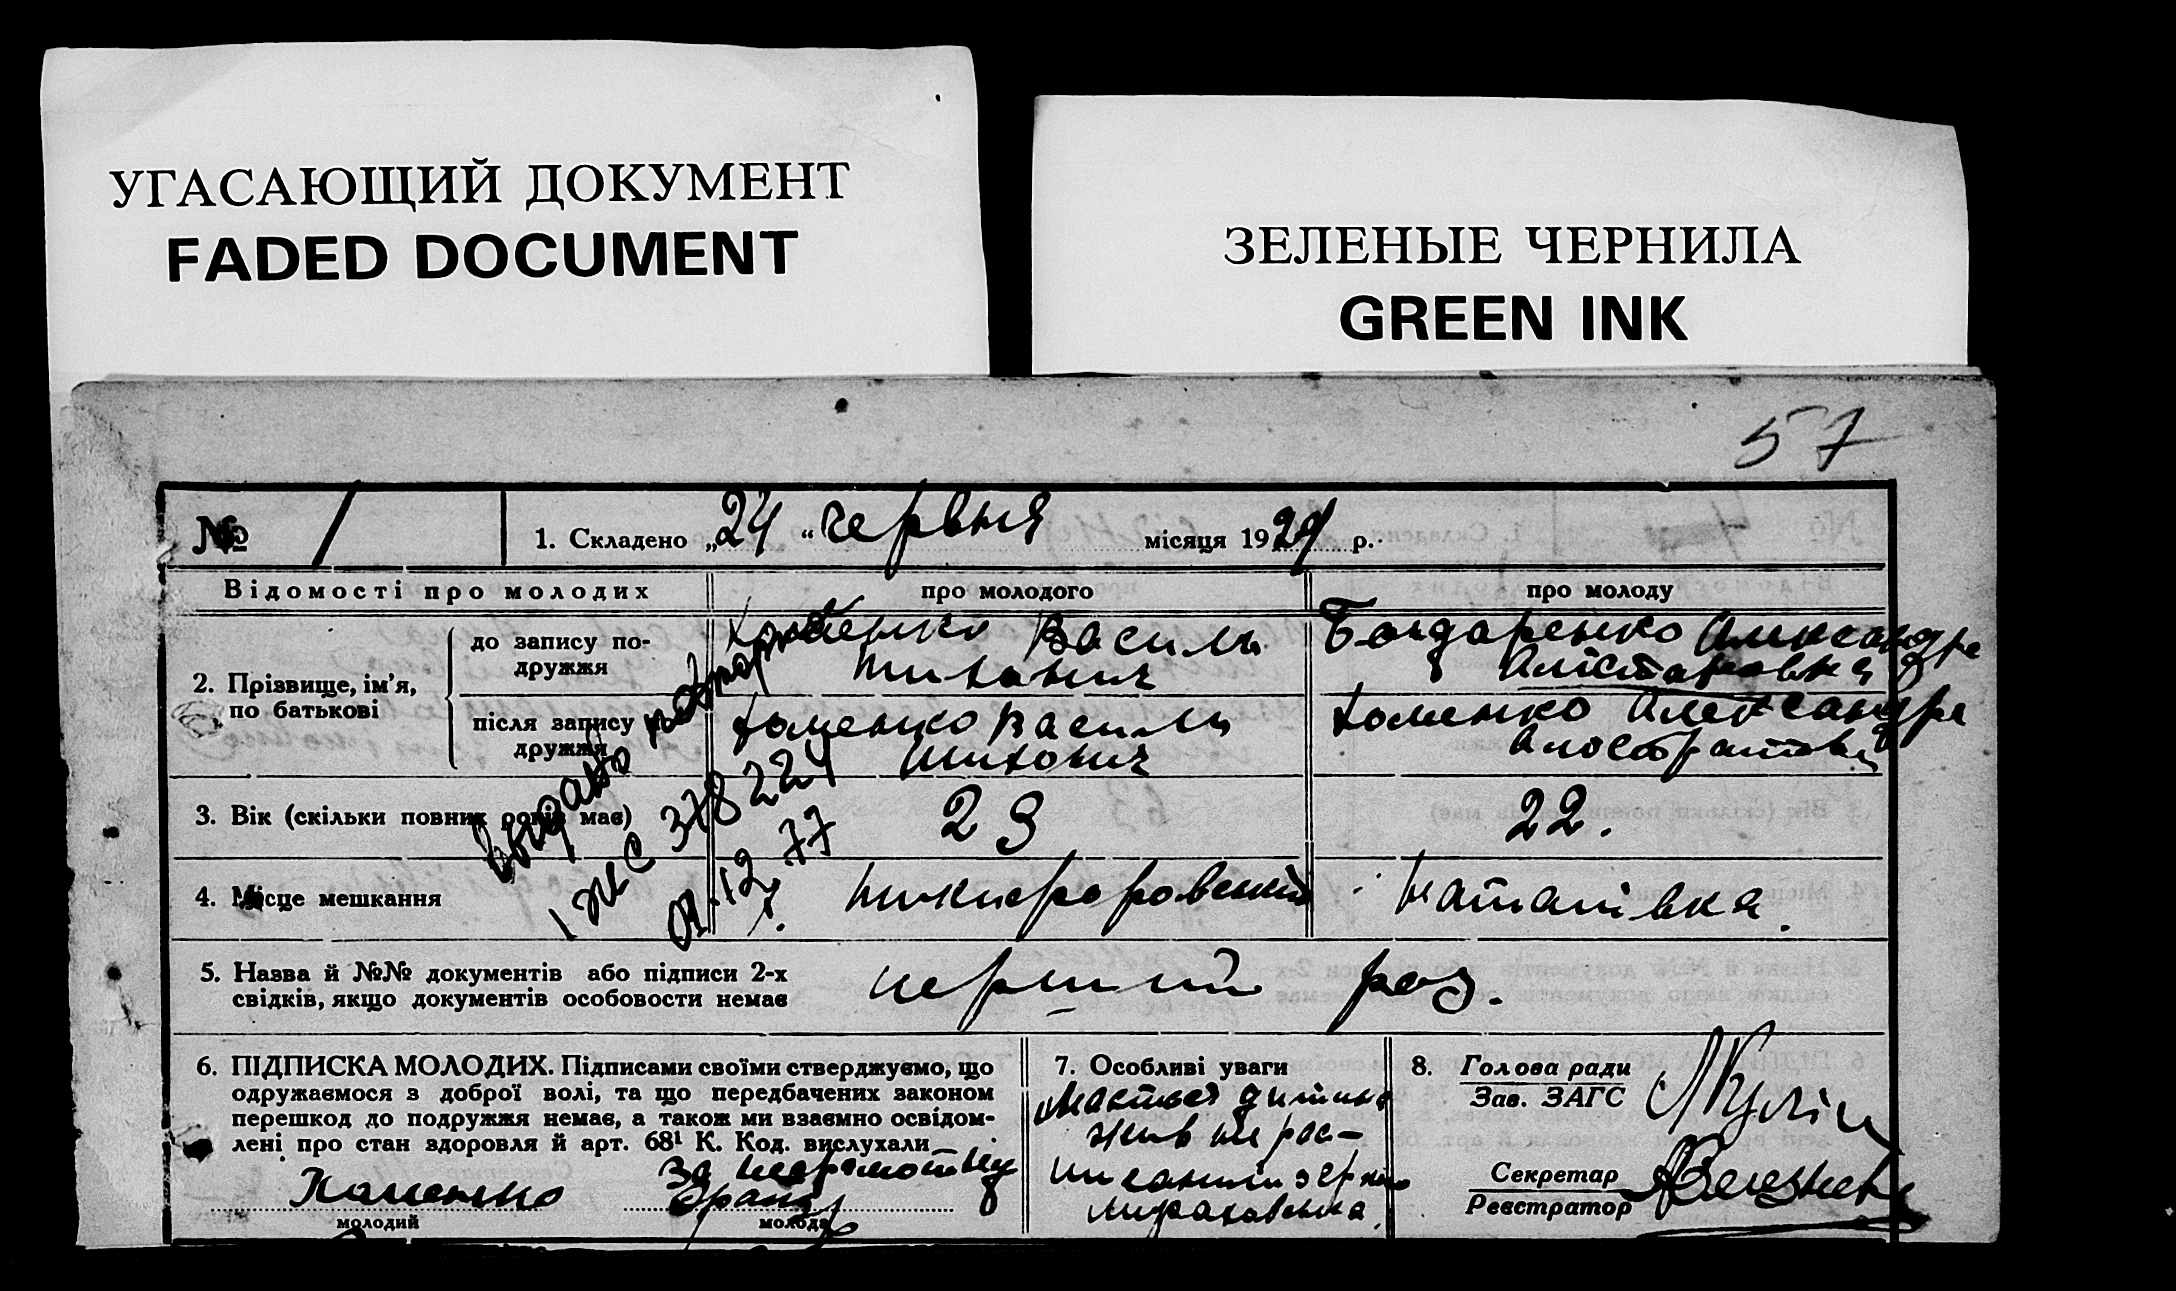 УГАСАЮЩИЙ ДОКУМЕНТ
FADED DOCUMENT
ЗЕЛЕНЫЕ ЧЕРНИЛА
GREEN INK
57
№ 1
1. Складено „24“ червня місяця 1929 р.
Відомості про молодих
про молодого
про молоду
2. Прізвище, ім’я, по батькові
до запису по-
дружжя
Хоменко Василь
Бондаренко Александра
після запису
дружжя
Хоменко Василь
Хоменко Александра
3. Вік (скільки повних років має)
23
22.
4. Місце мешкання
Натанівка.
видано повторно
1 ЖС 378224
07.12.77
5. Назва й №№ документів або підписи 2-х
свідків, якщо документів особовости немає
перший раз.
6. ПІДПИСКА МОЛОДИХ. Підписами своїми стверджуємо, що
одружаємося з доброї волі, та що передбачених законом
перешкод до подружжя немає, а також ми взаємно освідом-
лені про стан здоровля й арт. 68¹ К. Код. вислухали
Хоменко
за неграмотну
молодий
молода
7. Особливі уваги
8. Голова ради
Зав. ЗАГС
Секретар
Реєстратор